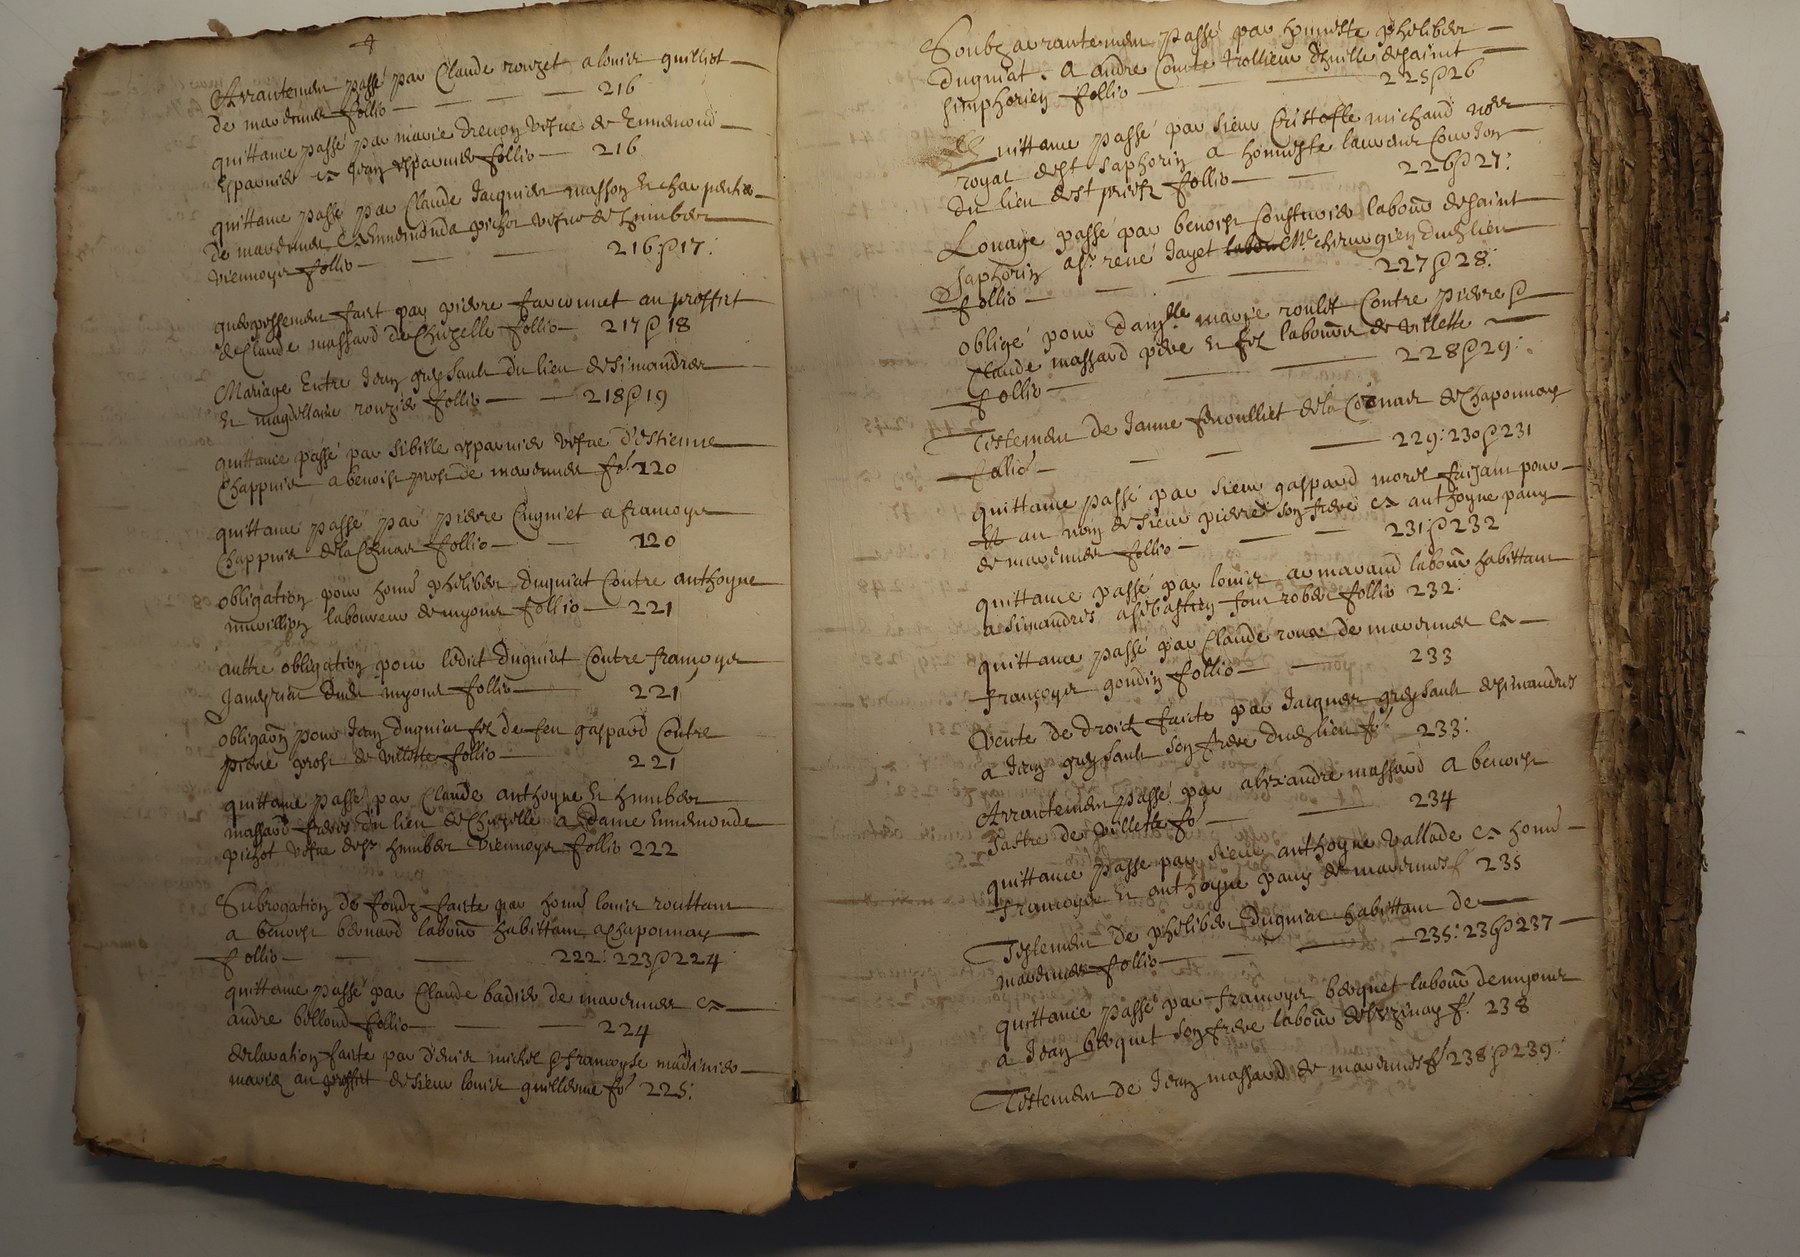 Arrantemen passé par Claude rouzet a louis guilliot
de marennes follio 216
quittance passé par marie drevon vefve de Ennemond
esparnier et Jean esparnier follio 216
quittance passé par Claude Jacquier masson et charpentier
de marennes et Ennemonda pichot vefve de humber
viennoys follio 216 & 17:
guerpissemen faict par pierre farconnet au proffict
de Claude massard de Chuzelle follio 217 & 18
Mariage Entre Jean greysault du lieu de Simandres
et magdellaine rouzier follio 218 & 19
quittance passé par sibille esparnier vefve d'Estienne
Chappuis a benoist prost de marennes fo. 120
quittance passé par pierre Cugniet a françoys
Chappuis de la follio 120
obligation pour hons philiber dugniat Contre anthoyne
laboureur de myons follio 221
auttre obligation pour ledict dugniat Contre françoys
Janeyriat dud. myons follio 221
obligaõn pour Jean dugniat filz de feu gaspard Contre
pierre prost de villette follio 221
quittance passé par Claude anthoyne et humber
massard freres du lieu de Chuzelle a dame Ennemonde
pichot vefve de sr humber viennoys follio 222
Subrogation de fondz faicte par hons louis routtant
a benoist bernard laboũr habittant a Chaponnay
follio 222: 223 & 224
quittance passé par Claude badier de marennes et
andre bellond follio 224
declaration faicte par denis michel & françoyse
mariez au proffict de sieur louis guillerme fo 225:
Soubz arrantemen passé par honneste philiber
dugniat. a andre Comte trollieur d'huille de saint
simphorien follio 225 & 26
Quittance passé par sieur Cristofle michaud noer
royal de st saphorin a honneste laurens Courton
du lieu de st priest follio 226 & 27:
Louage passé par benoist laboũr de saint
saphorin a sr. rené Jayet me chirurgien dud. lieu
follio 227 & 28:
obligé pour damlle marie roulet Contre pierre &
Claude massard pere et filz laboũrs de villette
follio 228 & 29:
Testemen de Janne fenoulliet de la de Chaponnay
follio 229: 230 & 231
quittance passé par sieur gaspard morel faizant pour
et au nom de sieur pierre son frere et anthoyne pany
de marennes follio 231: & 232
quittance passé par louis armarand laboũr habittant
a simandres a sebastien rober follio 232:
quittance passé par Claude roux de marennes et
françoys gondin follio 233
Vente de droict faicte par Jacques greysault de simandres
a Jean greysault son frere dud. lieu fo 233:
Arrantemen passé par alexandre massard a benoist
Jastre de villette fo 234
quittance passé par sieur anthoyne vallade et hons
françoys et anthoyne pany de marennes f 235
Testemen de philiber dugniat habittant de
marennes follio 235: 236 & 237
quittance passé par françoys berquet laboũr de myons
a Jean berquet son frere laboũr de fo. 238
Testemen de Jean massard de marennes fo 238: & 239: